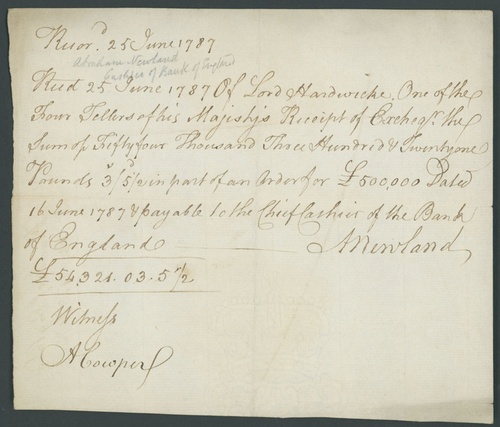 Recor.d 25 June 1787
Abraham Newland
Cashier of Bank of England
Recd 25 June 1787 Of Lord Hardwicke, One of the
Four Tellers of his Majesty's Receipt of Excheqr. the
Sum of Fifty four Thousand Three Hundred & Twenty one
Pounds 3s/5d½ in part of an Order for £500,000 Dated
16 June 1787 & payable to the Chief Cashier of the Bank
of England
ANewland
£54,321.03.5 1/2
Witness
ACowper